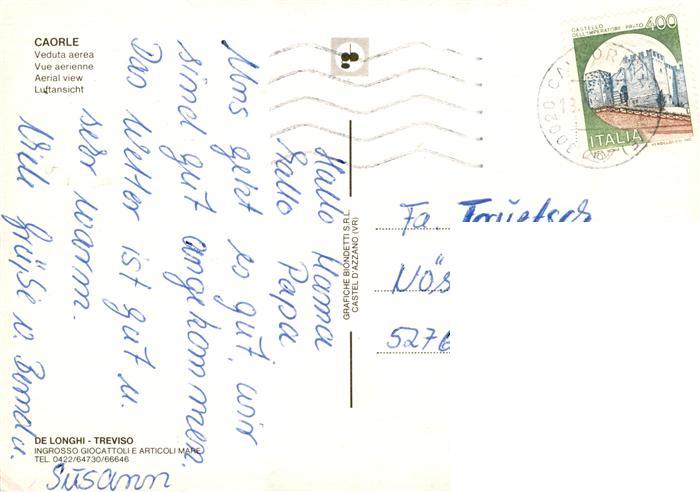 CAORLE
Veduta aerea
Vue aérienne
Aerial view
Luftansicht
CASTELLO
DELL'IMPERATORE PRATO
400
ITALIA
30020
Hallo Mama
Hallo Papa
Uns geht es gut, wir
sind gut angekommen.
Das Wetter ist gut u.
sehr warm.
Viele Grüße v. Bernd u.
Susann
GRAFICHE BIONDETTI S.R.L.
CASTEL D'AZZANO (VR)
Fa.
Nös
5276
DE LONGHI - TREVISO
INGROSSO GIOCATTOLI E ARTICOLI MARE
TEL. 0422/64730/66646